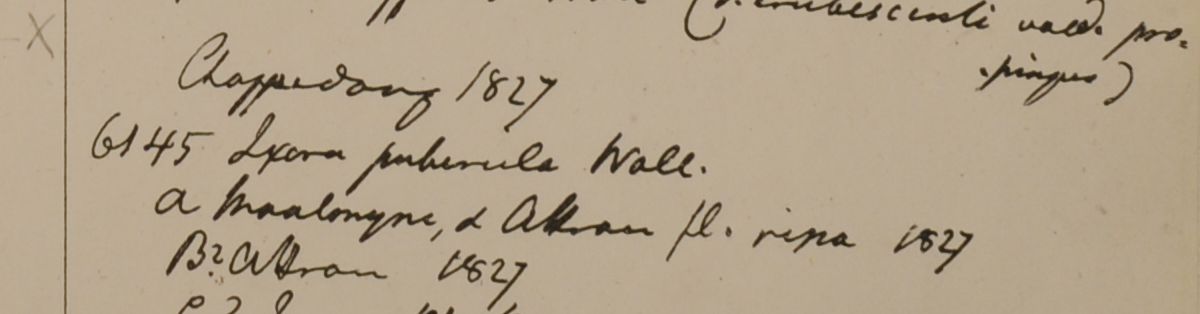 (I. erubescenti vald. pro-
pinqua)
Chappedong 1827
6145 Ixora puberula Wall.
a Moalmyne, & Attran fl. ripa 1827
B? Attran 1827